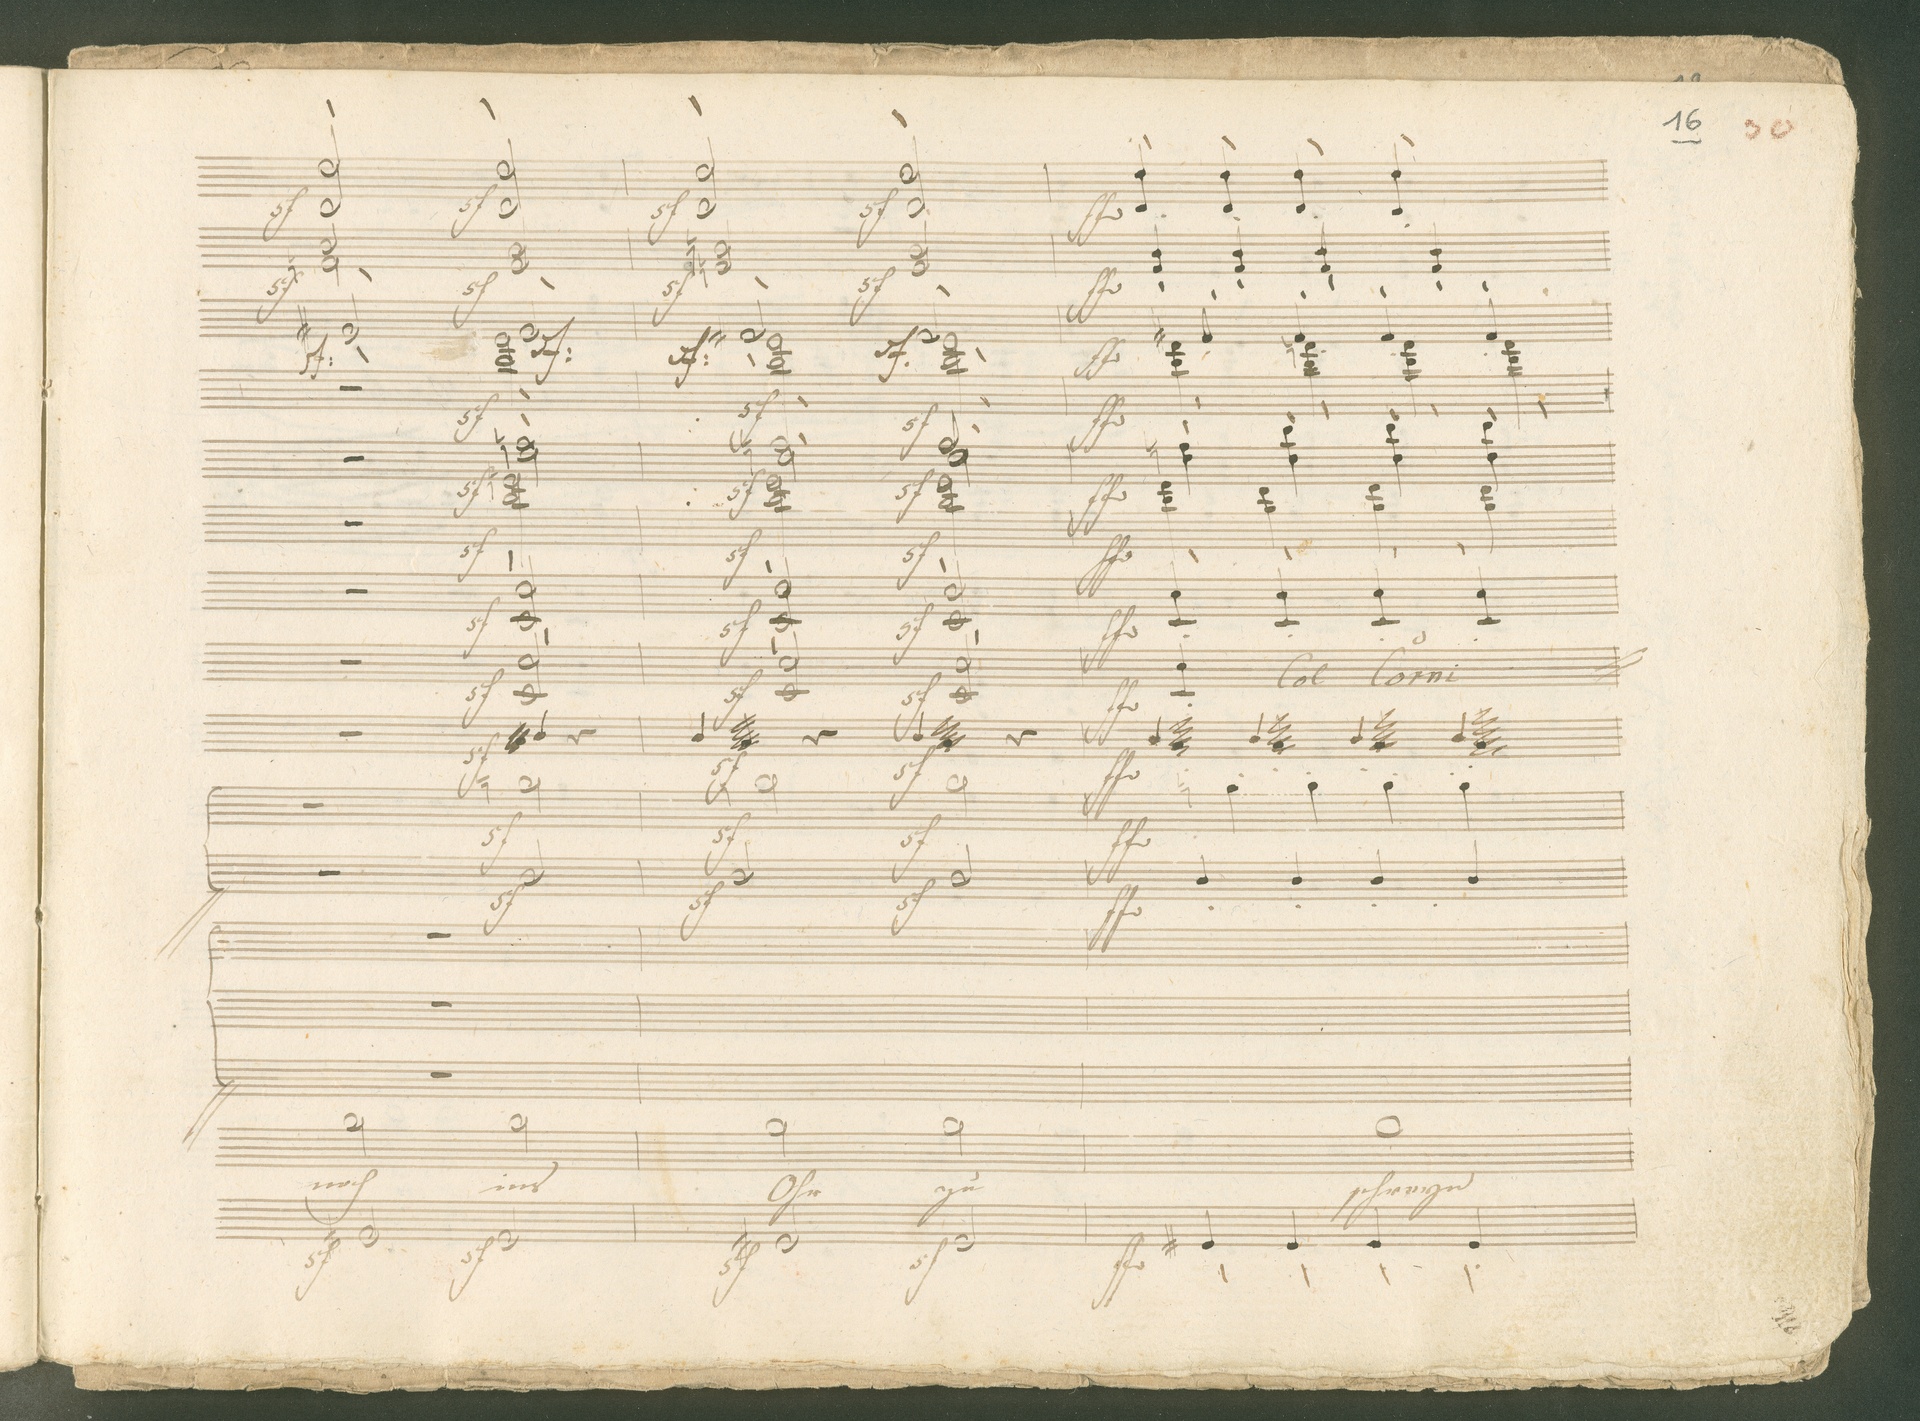 16 30
sf sf sf sf ffo
sf sf sf sf ffo
sf: sf: sf: sf. ffo
sf sf sf ffo
sf sf sf ffo
sf sf sf ffo
sf sf sf ffo
Col Corni
sf sf sf ffo
sf sf sf ffo
sf sf sf ffo
sf sf sf ffo
noch ins Ohr zu
sf sf sf sf ffo